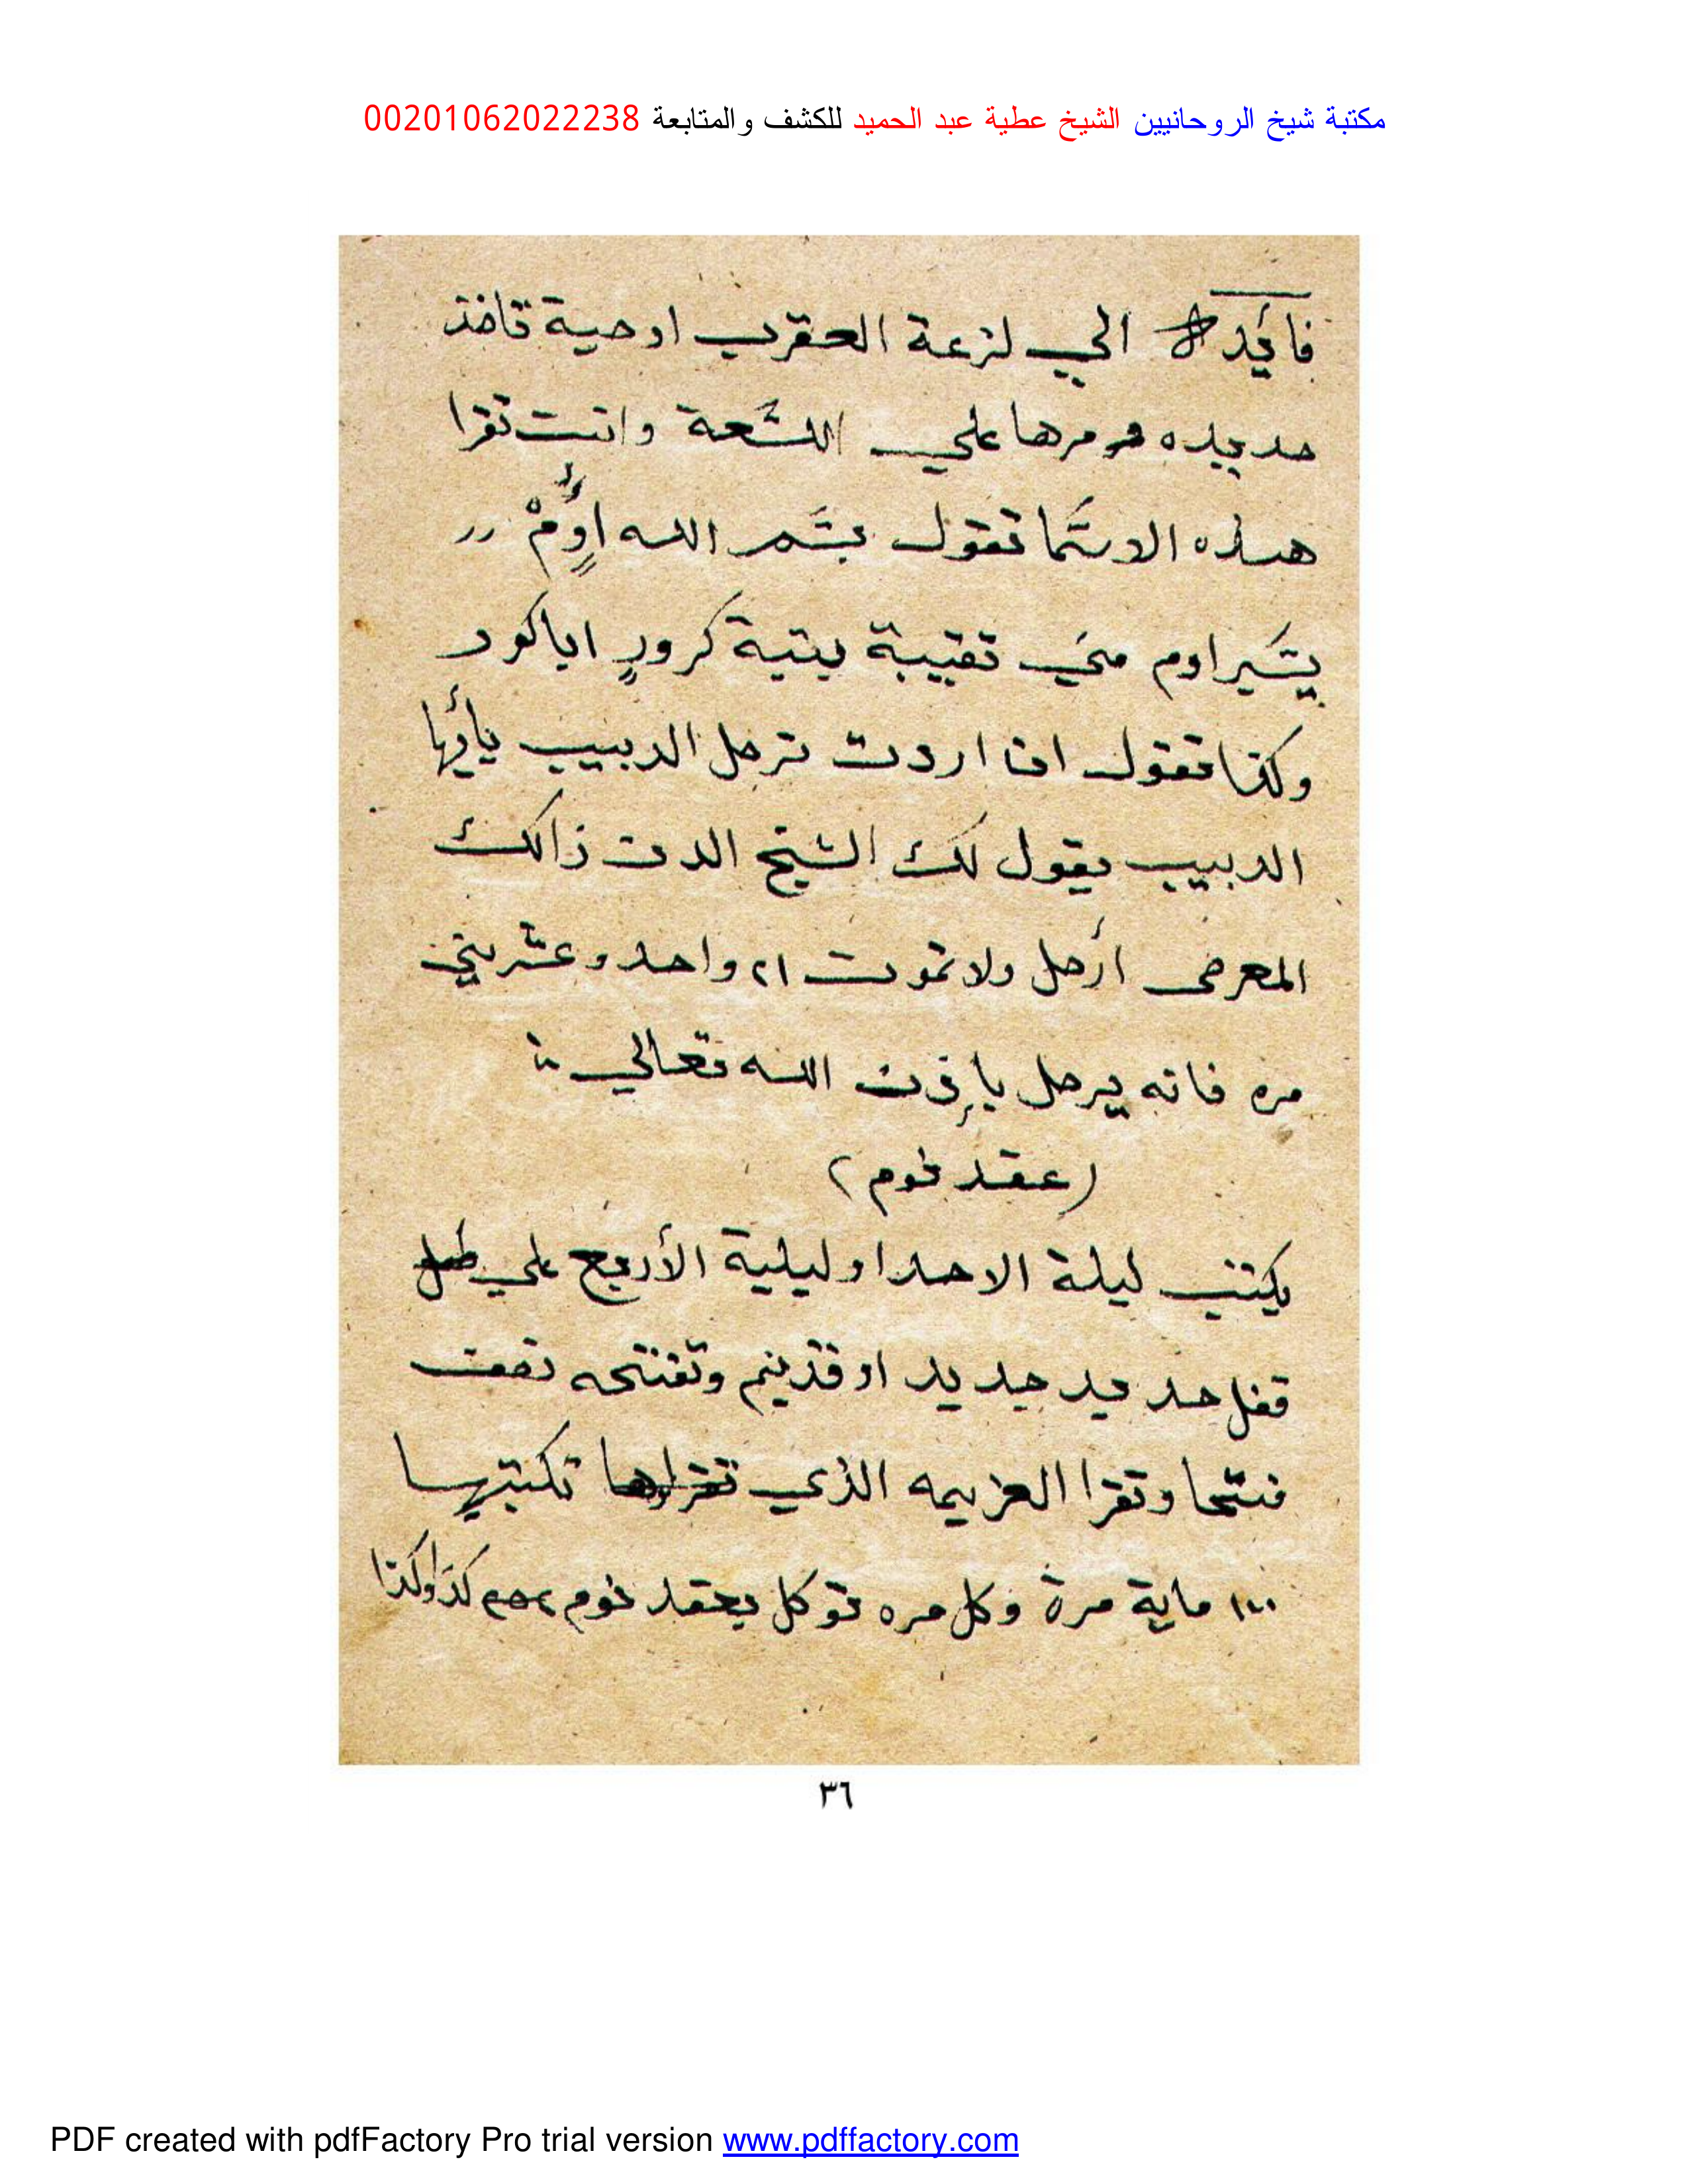 مكتبة شيخ الروحانيين الشيخ عطية عبد الحميد للكشف والمتابعة 00201062022238
فايده الي لزعة العقرب او حية تاخذ
حديده ومرها علي اللسعة وانت تقرا
هذه الاسما تقول بسم الله اوم
يسير اوم مني تقيبة يتية كرور اياكور
وكذا تقول اذا اردت ترحل الدبيب يأيها
الدبيب يقول لك الشيخ الدن زالك
المعرض ارحل ولا تموت ٢١ واحد وعشرين
مره فانه يرحل بإذن الله تعالي
(عقد نوم)
يكتب ليلة الاحد او ليلية الأربع علي
قفل حديد جديد او قديم وتفتحه نصف
فتحا وتقرا العزيمه الذي تكتبها
١٠٠ ماية مرة وكل مره توكل بعقد نوم كذا وكذا
٣٦
PDF created with pdfFactory Pro trial version www.pdffactory.com